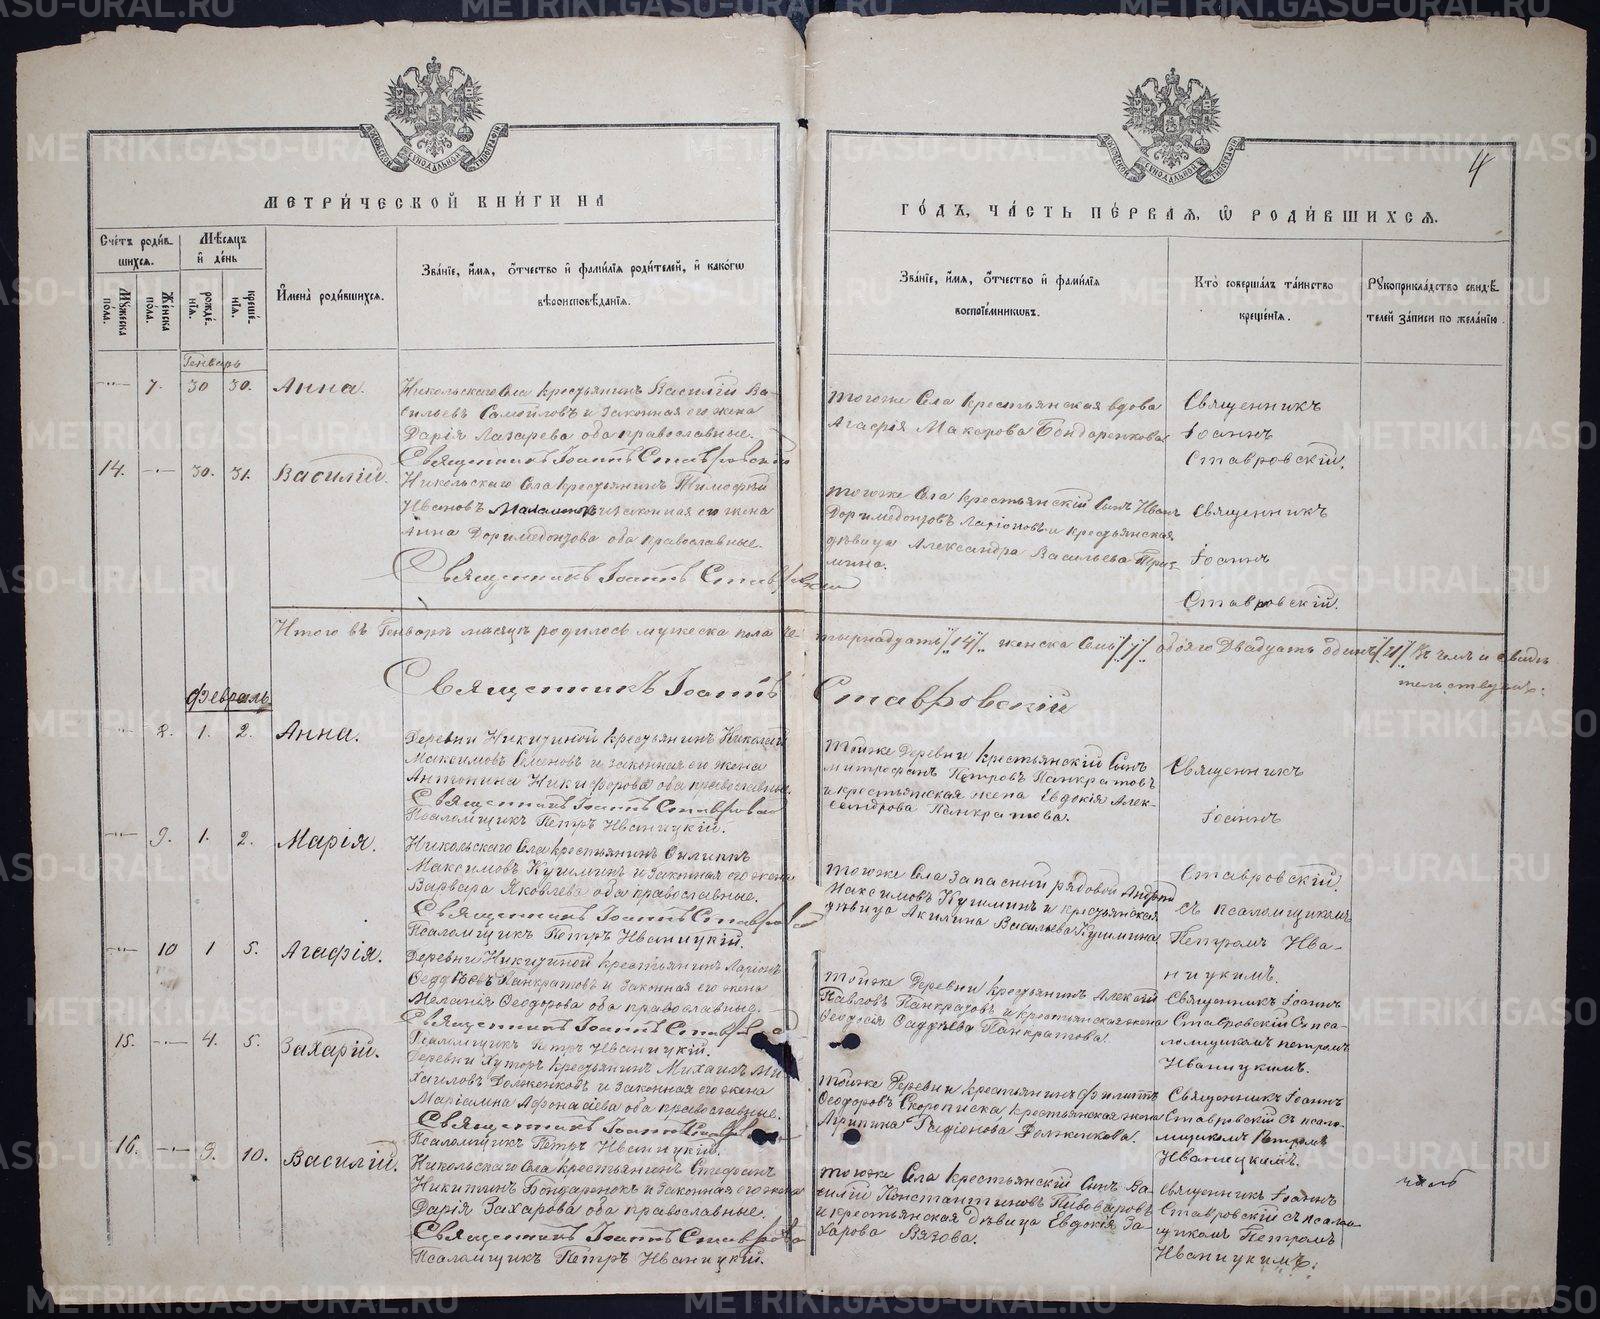 МЕТРИ́ЧЕСКОЙ КНИ́ГИ НА
ГО́ДЪ, ЧА́СТЬ ПЕ́РВАЯ, Ѡ РОДИ́ВШИХСЯ.
4
Сче́тъ роди́в-
шихся.
Мѣ́сяцъ
и҆ де́нь
Мужеска по́ла.
Же́нска по́ла.
рожде́-
нїѧ.
креще́-
нїѧ.
И҆мена̀ роди́вшихся.
Зва́нїе, и҆́мѧ, ѻ҆́тчество и҆ фами́лїѧ роди́телей, и҆ како́гѡ
вѣроисповѣ́данїѧ.
Зва́нїе, и҆́мѧ, ѻ҆́тчество и҆ фами́лїѧ
воспрїе́мниковъ.
Кто̀ соверша́лъ та́инство
креще́нїѧ.
Рукоприкла́дство свидѣ́-
телей за́писи по жела́нїю.
Генварь
7. 30 30. Анна.
Никольскаго Села крестьянинъ Василій Ва-
сильевъ Самойловъ и законная его жена
Дарія Лазарева оба православные.
Священникъ Іоаннъ Ставровскій
тогоже Села крестьянская вдова
Агафія Макарова Бондаренкова
Священникъ
Іоаннъ
Ставровскій.
14. 30. 31. Василій.
Никольскаго Села крестьянинъ Тимофей
Ивановъ и законная его жена
Анна Доримедонтова оба православные.
Священникъ Іоаннъ Ставровскій
тогоже Села крестьянскій Сынъ Иванъ
Доримедонтовъ Ларіоновъ и крестьянская
дѣвица Александра Васильева
Священникъ
Іоаннъ
Ставровскій.
Итого въ Генварѣ мѣсяцѣ родилось мужеска пола че-
тырнадцать /14/ женска Семь /7/ обоего Двадцать одинъ /21/ въ чемъ и свидѣ-
тельствуемъ:
Священникъ Іоаннъ Ставровскій
Февраль
2. 1. 2. Анна.
Деревни Никитиной крестьянинъ Николай
Максимовъ Семеновъ и законная его жена
Антонина Никифорова оба православные.
Священникъ Іоаннъ Ставровскій
Псаломщикъ Петръ Иваницкій.
тойже Деревни крестьянскій Сынъ
Митрофанъ Петровъ Панкратовъ
и крестьянская жена Евдокія Алек-
сандрова Панкратова.
Священникъ
Іоаннъ
Ставровскій
съ псаломщикомъ
Петромъ Ива-
ницкимъ.
9. 1. 2. Марія.
Никольскаго Села крестьянинъ Филиппъ
Максимовъ Кушминъ и законная его жена
Варвара Яковлева оба православные.
Священникъ Іоаннъ Ставровскій
Псаломщикъ Петръ Иваницкій.
тогоже Села запасный рядовой Андрей
Максимовъ Кушминъ и крестьянская
дѣвица Акилина Васильева Кушмина.
10 1 5. Агафія.
Деревни Никитиной крестьянинъ Ларіонъ
Панкратовъ и законная его жена
Меланія Феодорова оба православные.
Священникъ Іоаннъ Ставровскій
Псаломщикъ Петръ Иваницкій.
тойже Деревни крестьянинъ Алексѣй
Павловъ Панкратовъ и крестьянская жена
Феодосія Фаддѣева Панкратова.
Священникъ Іоаннъ
Ставровскій съ пса-
ломщикомъ Петромъ
Иваницкимъ.
15. 4. 5. Захарій.
Деревни Хуторъ крестьянинъ Михаилъ Ми-
хаиловъ Долженковъ и законная его жена
Маріамна Афонасіева оба православные.
Священникъ Іоаннъ Ставровскій
Псаломщикъ Петръ Иваницкій.
тойже Деревни крестьянинъ Филиппъ
Феодоровъ Скорописка крестьянская жена
Агрипина Долженкова.
Священникъ Іоаннъ
Ставровскій съ псало-
мщикомъ Петромъ
Иваницкимъ.
16. 9. 10. Василій.
Никольскаго Села крестьянинъ Стефанъ
Никитинъ Бондаренокъ и законная его жена
Дарія Захарова оба православные.
Священникъ Іоаннъ Ставровскій
Псаломщикъ Петръ Иваницкій.
тогоже Села крестьянскій Сынъ Ва-
силій Константиновъ Пивоваровъ
и крестьянская дѣвица Евдокія За-
харова Вязова.
Священникъ Іоаннъ
Ставровскій съ псалом-
щикомъ Петромъ
Иваницкимъ.
METRIKI.GASO-URAL.RU